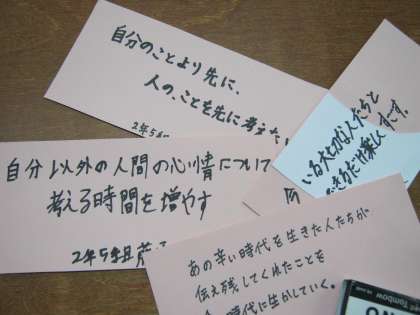 自分のことより先に、
人の、ことを先に考え
2年5組
自分以外の人間の心情について
考える時間を増やす
2年5組
いる大切な人たちと
できるだけ楽し
ます。
あの辛い時代を生きた人たちが
伝え残してくれたことを
時代に生かしていく。
Tombow
NO